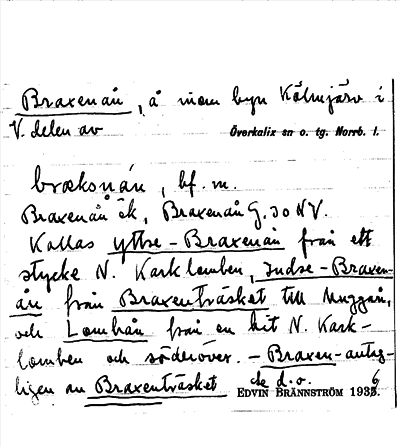 Braxenån, å inom byn Kälmjärv i
V. delen av Överkalix sn o. tg. Norrb. l.
bræksnán, bf. m.
Braxenån ék, Braxenån G. 30 NV.
Kallas yttre-Braxenån från ett
stycke N. Karklomben, indre-Braxen-
ån från Braxenträsket till Muggån,
och Lombån från en bit N. Kark-
lomben och söderöver. – Braxen- antag-
ligen av Braxenträsket de d. o.
EDVIN BRÄNNSTRÖM 1936.